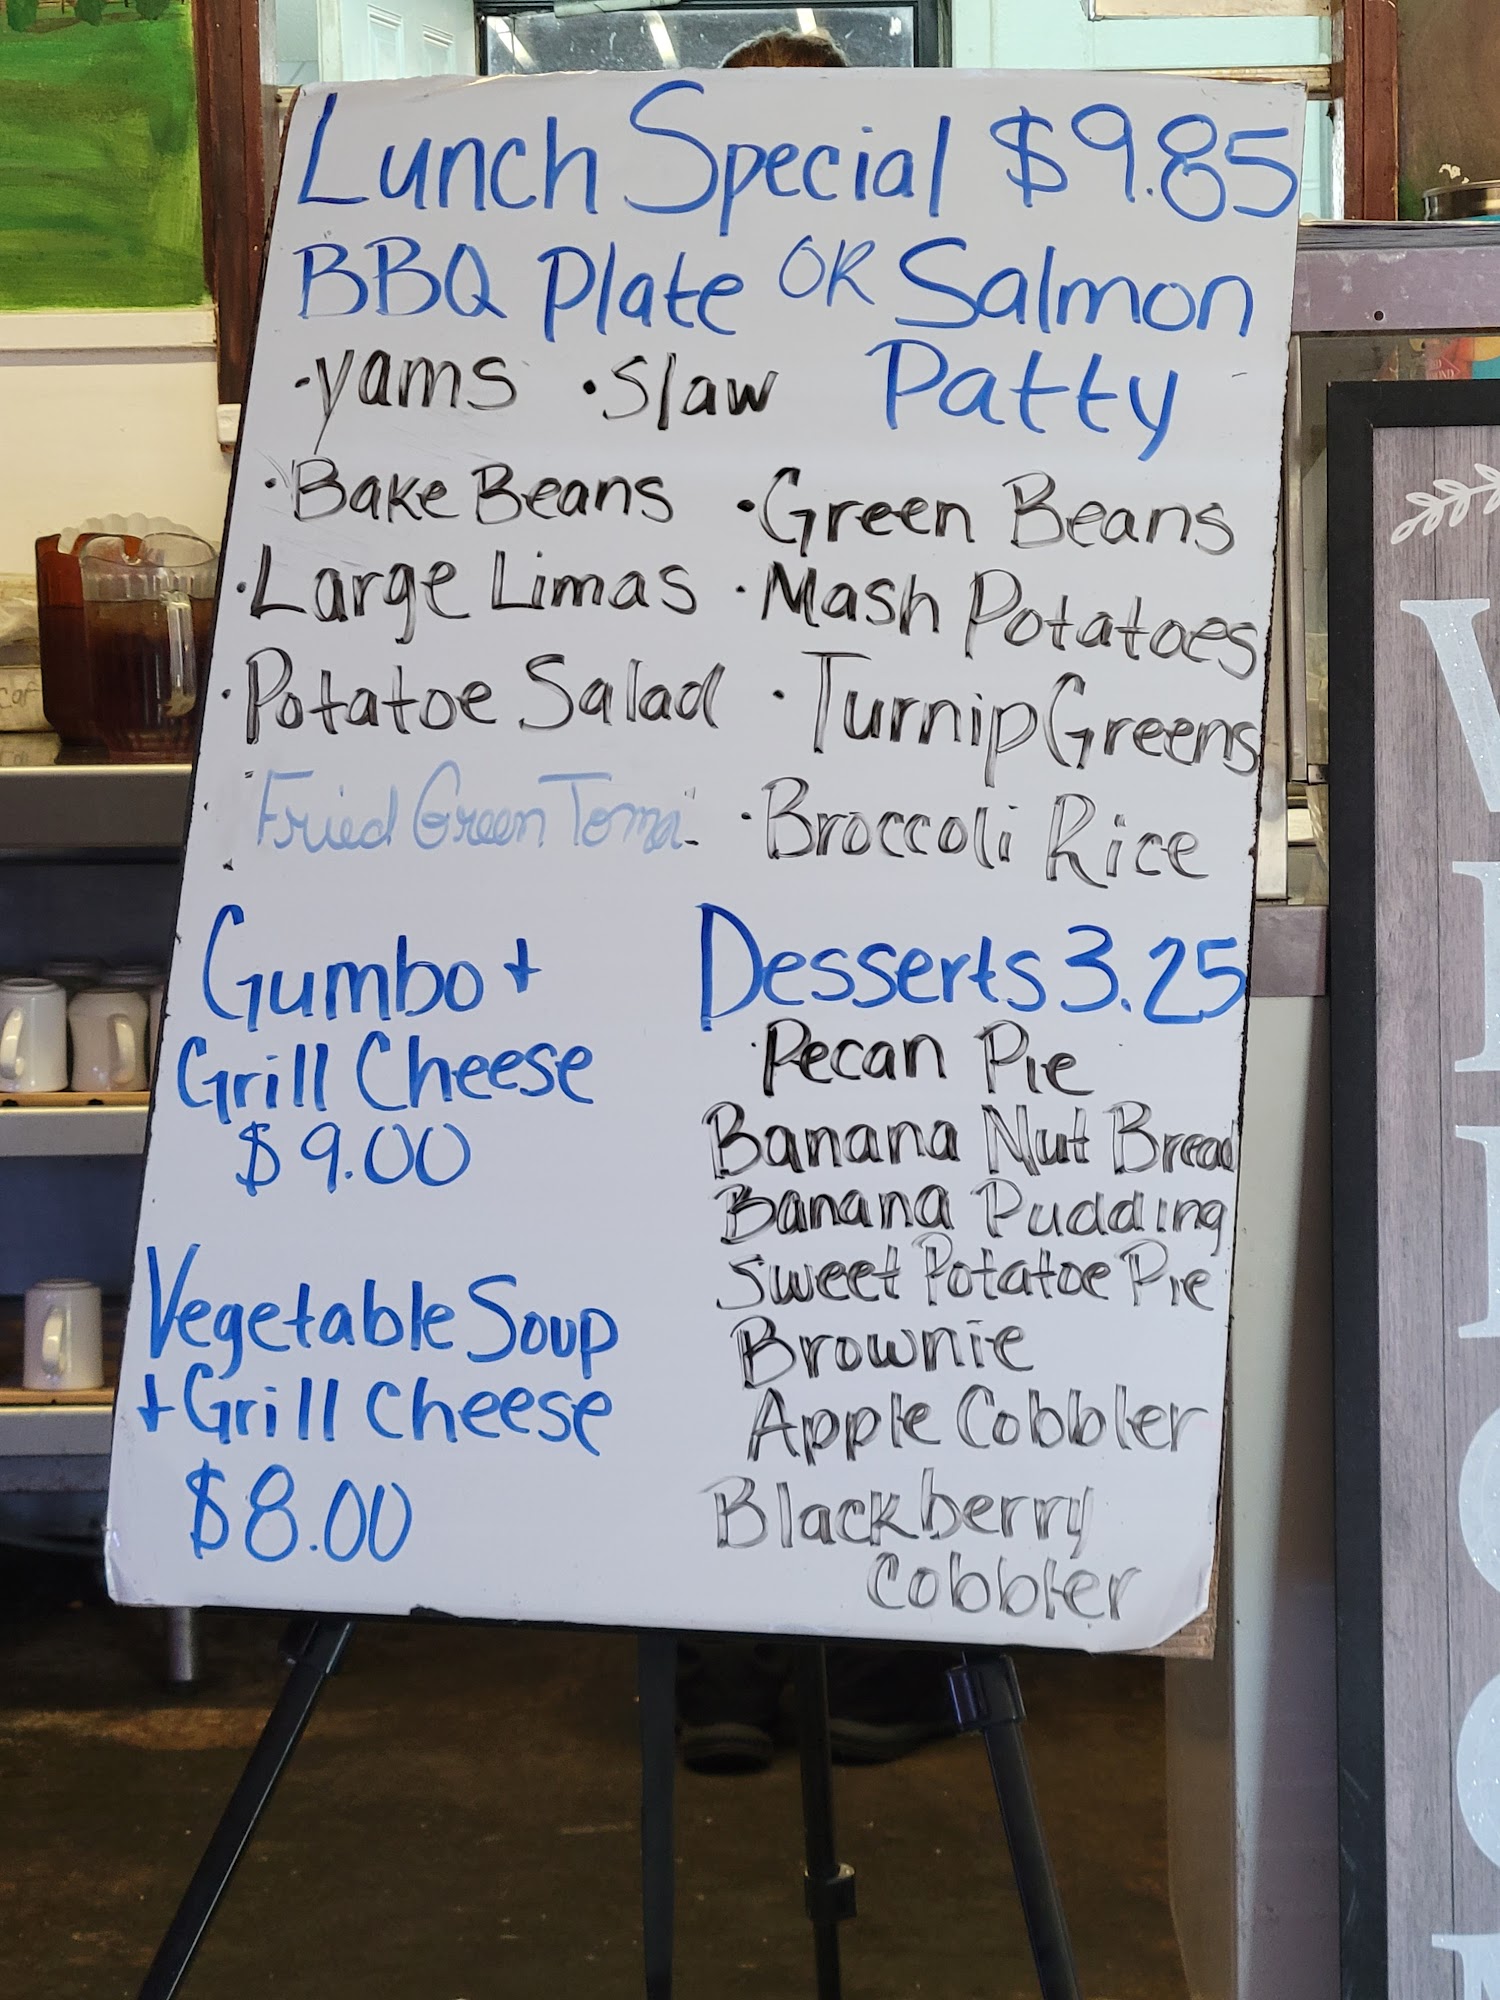 Lunch Special $9.85
BBQ Plate OR Salmon
Patty
·yams ·Slaw
·Bake Beans ·Green Beans
·Large Limas ·Mash Potatoes
·Potatoe Salad ·Turnip Greens
Fried Green Toma ·Broccoli Rice
Gumbo +
Grill Cheese
$9.00
Vegetable Soup
+ Grill Cheese
$8.00
Desserts 3.25
Pecan Pie
Banana Nut Bread
Banana Pudding
Sweet Potatoe Pie
Brownie
Apple Cobbler
Blackberry
Cobbler